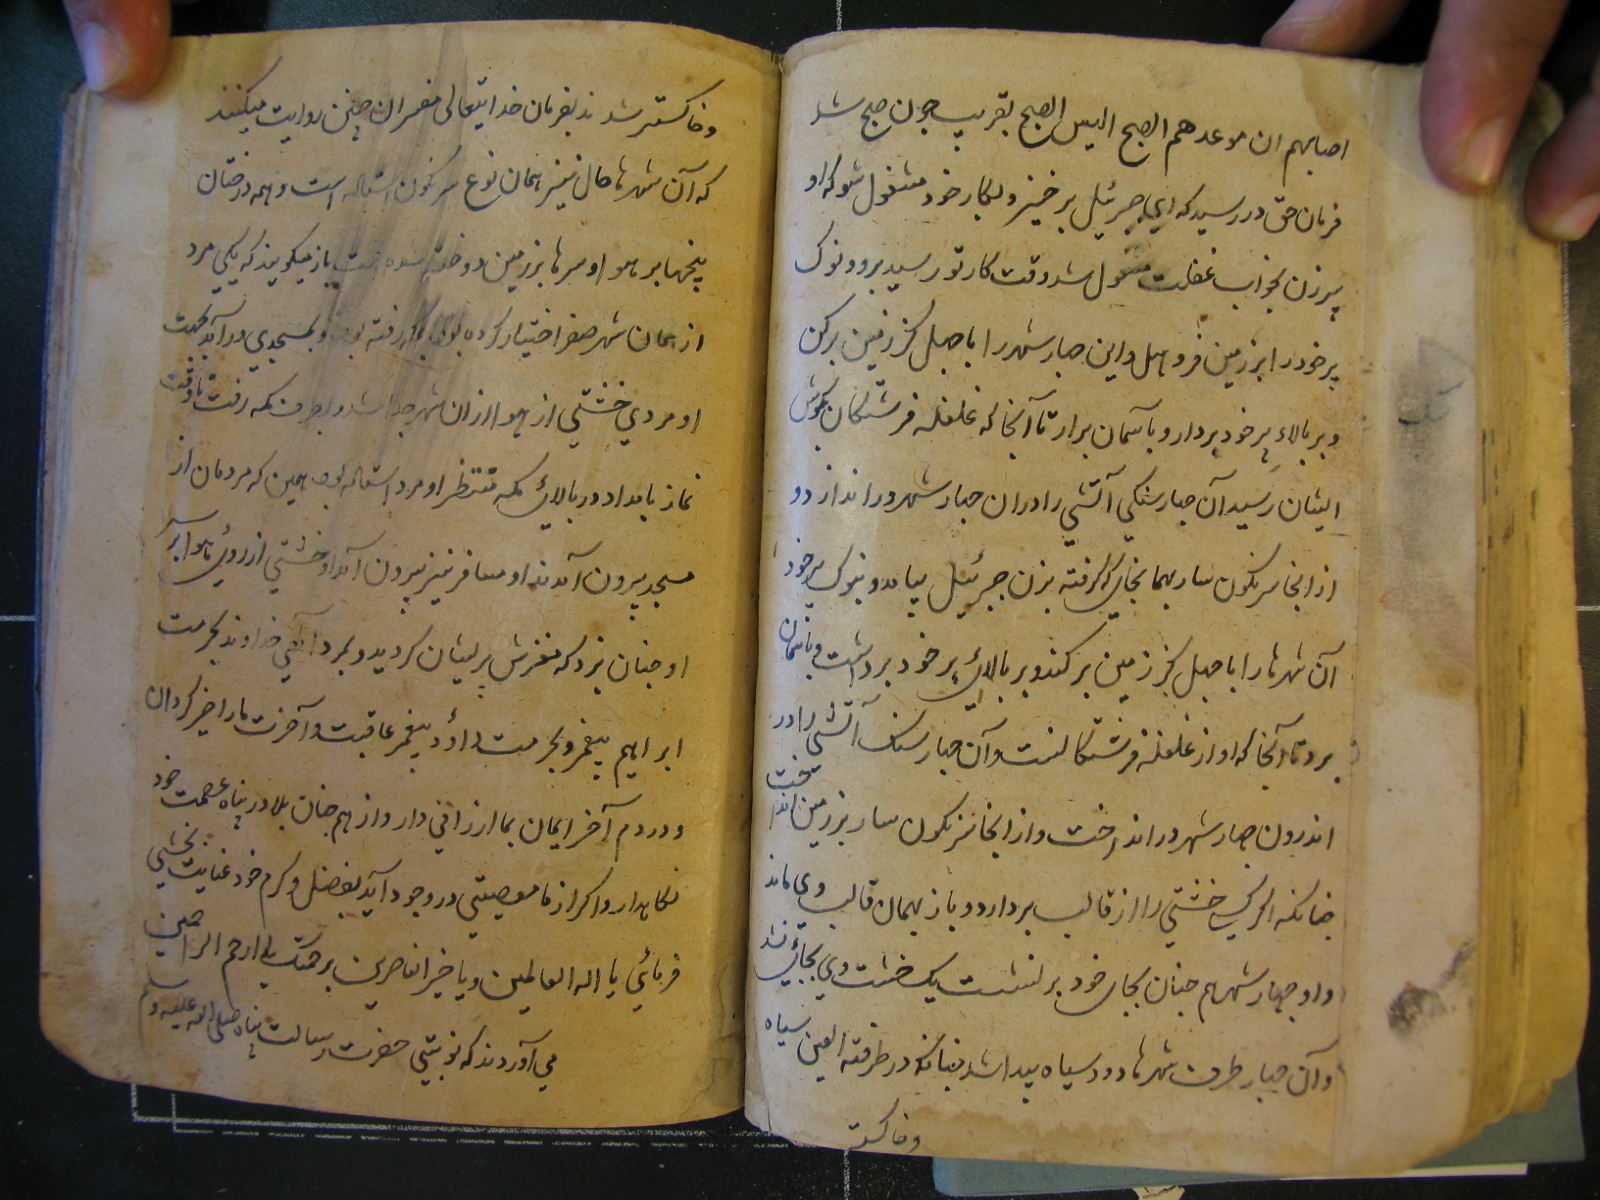 اصابهم ان موعدهم الصبح الیس الصبح بقریب چون صبح شد
فرمان حق در رسید که ای جبرئیل برخیز و بکار خود مشغول شو که او
پیر زن بخواب غفلت مشغول شد وقت کار تو رسید برو و نوک
پر خود را بزمین فرو هل و این چهار شهر را با چهل کز زمین برکن
و بر بالاء پر خود بردار و باسمان برار تا آنجا که غلغله فرشتکان بکوش
ایشان رسید آن چهار سنکی آتشی را دران چهار شهر در انداز و
از انجا سرنکون سار بهما نجای که کرفته بزن جبرئیل بیامد و بنوک پر خود
آن شهرها را با چهل کز زمین برکند و بر بالای پر خود برداشت و باسمان
برد تا آنجا که آواز غلغله فرشتکانست و آن چهار سنک آتشی را در
اندرون چهار شهر در انداخت و از انجا سرنکون سار بزمین انداخت
چنانکه اکر یک خشتی را از قالب بردارد و باز بهمان قالب وی ماند
و او چهار شهر هم چنان بجای خود برنشست یک خشت وی بجائی نشد
و آن چهار طرف شهرها دود سیاه پیدا شد چنانکه در طرفة العین سیاه
و خاکستر
و خاکستر شدند بفرمان خدایتعالی مفسران چنین روایت میکنند
که آن شهرها حال نیز همان نوع سرنکون استاله است و همه درختان
بیخها بر هوا و سرها بزمین دوخته شده است باز میکویند که یکی مرد
از همان شهر سفر اختیار کرده بود بمکه رفته بود و بمسجدی در آمد بجهت
او مردی خشتی از هوا ازان شهر جدا شد و بطرف مکه رفت تا وقت
نماز بامداد در بالای مکه منتظر او مرد استاله بود همین که مردمان از
مسجد بیرون آمدند او مسافر نیز بیرون آمد او خشتی از روی هوا بر سر
او چنان بزد که مغزش پریشان کردید و بمرد آلهی خداوند بحرمت
ابراهیم پیغمبر و بحرمت داؤد پیغمبر عاقبت و آخرت ما را خیر کردان
و در دم آخر ایمان بما ارزانی دار و از هم چنان بلا در پناه عصمت خود
نکاهدار و اکر از ما معصیتی در وجود آید بفضل و کرم خود عنایت بخشی
فرمائی یا اله العالمین و یا خیر الناصرین برحمتک یا ارحم الراحمین
می آوردند که نوبتی حضرت رسالت پناه صلی الله علیه وسلم